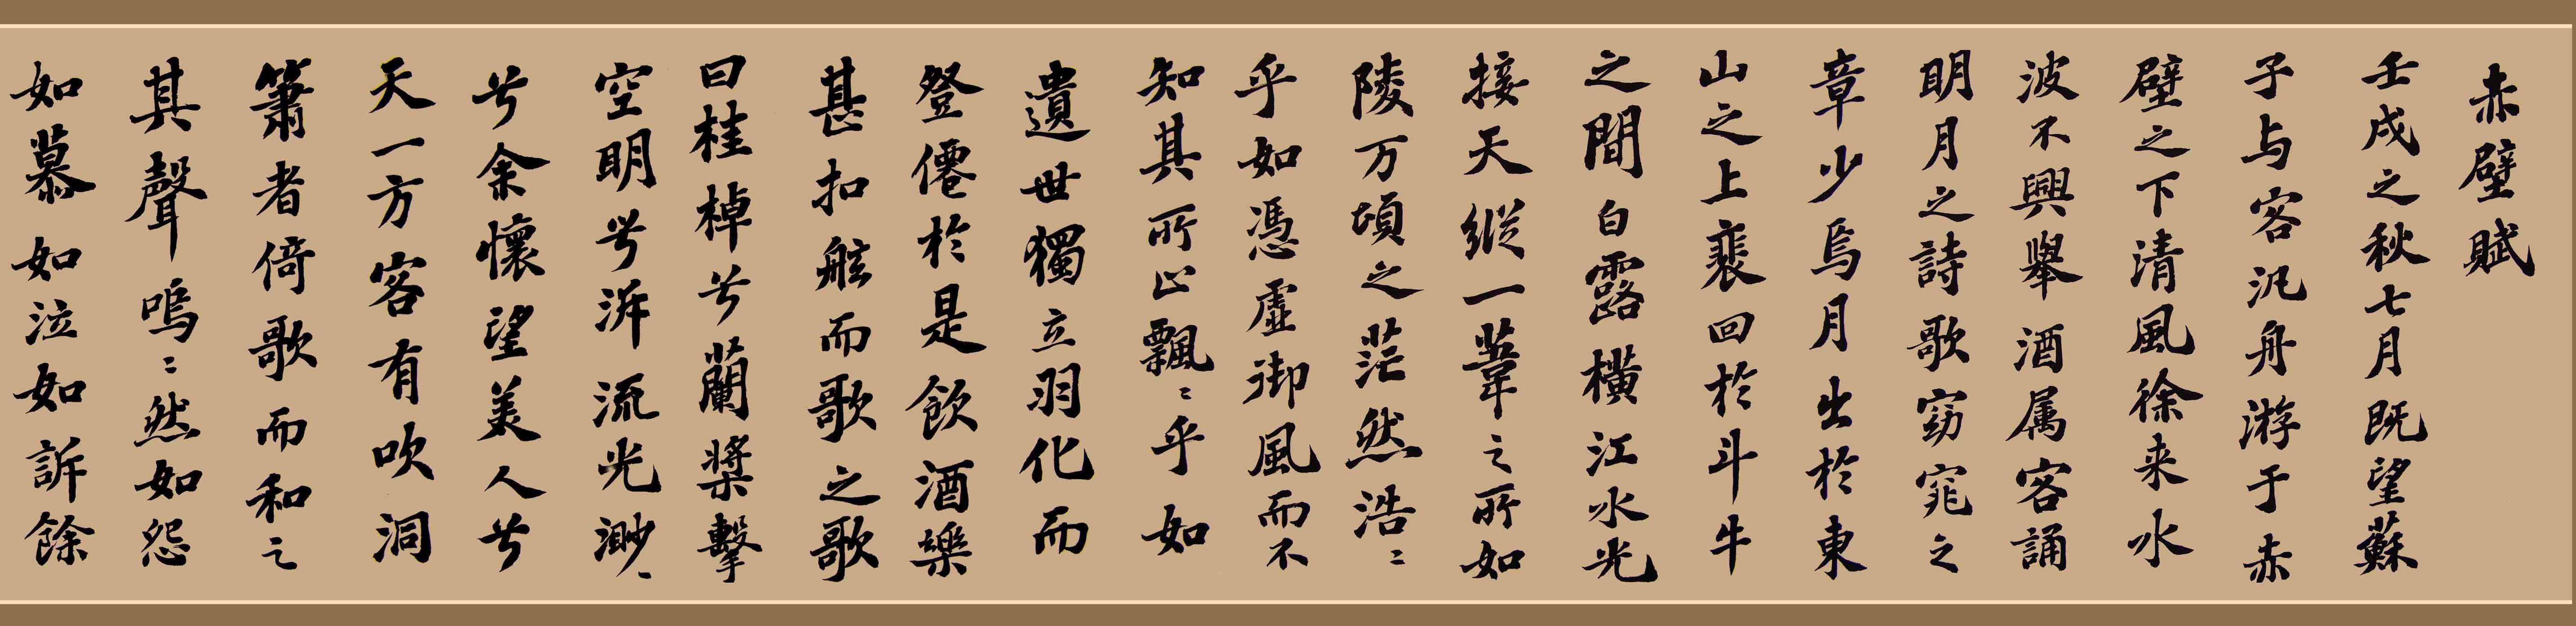 赤壁賦
壬戌之秋七月既望蘇
子与客汎舟游于赤
壁之下清風徐来水
波不興舉酒属客誦
明月之詩歌窈窕之
章少焉月出於東
山之上裴回於斗牛
之間白露橫江水光
接天縱一葦之所如
陵万頃之茫然浩〻
乎如憑虛御風而不
知其所止飄〻乎如
遺世獨立羽化而
登僊於是飲酒樂
甚扣舷而歌之歌
曰桂棹兮蘭槳擊
空明兮泝流光渺〻
兮余懷望美人兮
天一方客有吹洞
簫者倚歌而和之
其聲嗚〻然如怨
如慕如泣如訴餘